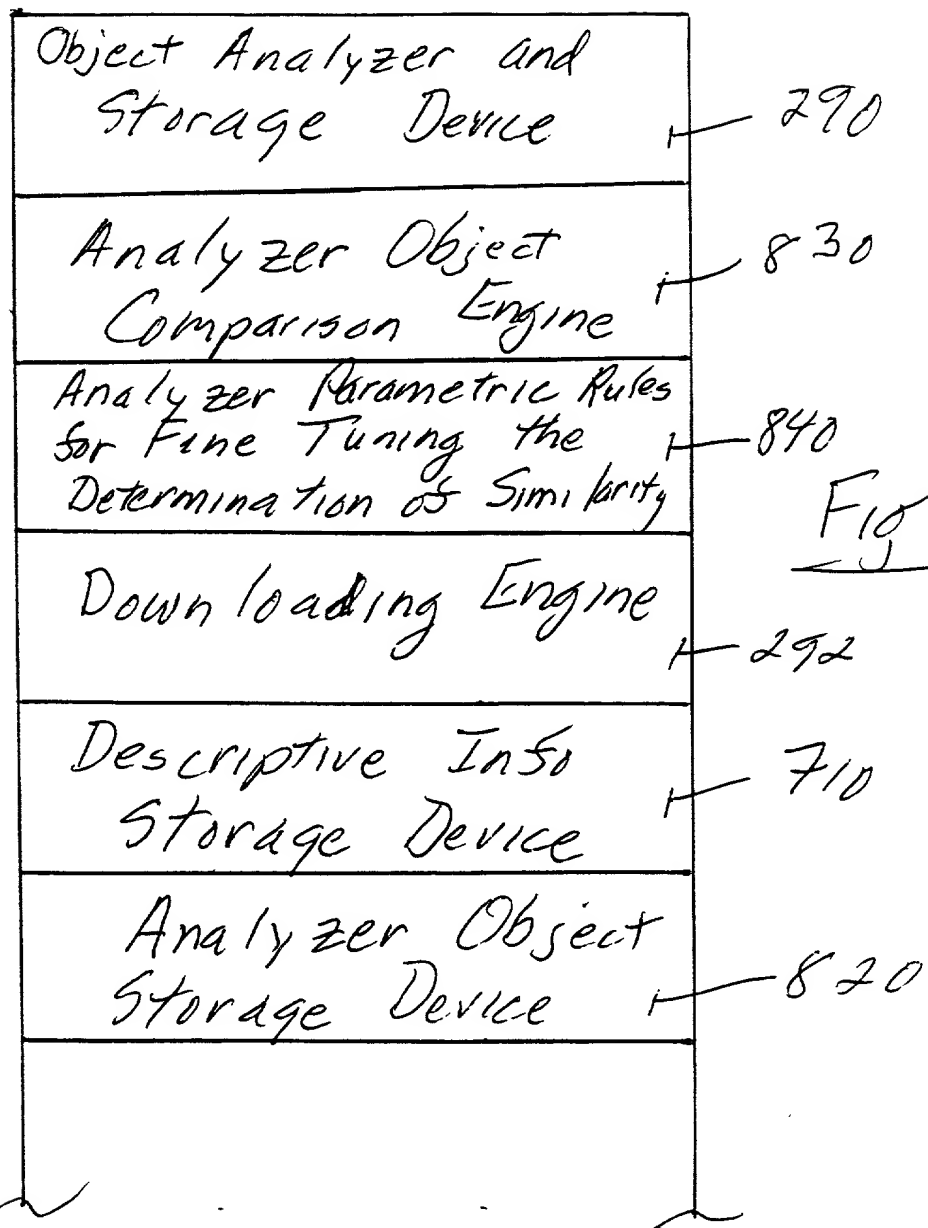 Object Analyzer and
Storage Device
290
Analyzer Object
Comparison Engine
830
Analyzer Parametric Rules
for Fine Tuning the
Determination of Similarity
840
Fig
Downloading Engine
292
Descriptive Info
Storage Device
710
Analyzer Object
Storage Device
820